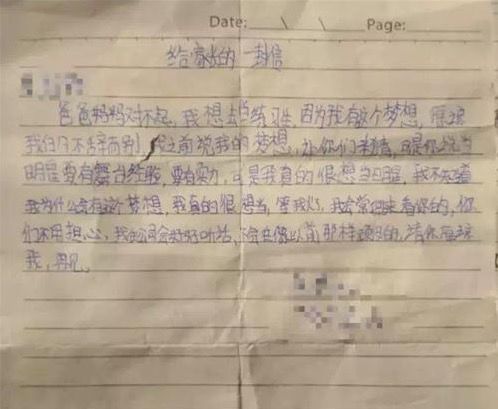 Date: \ \ Page:
给家长的一封信
爸爸妈妈对不起,我想去当练习生,因为我有这个梦想,原谅
我的不辞而别!我之前说我的梦想,你们
明星要有舞台经验,要有实力,可是我真的很想当明星,我不知道
我为什么会有这个梦想,我真的很想当,等我火了,我会常回来看你的,你
们不用担心,我会好好听话,不会在像以前那样顽皮的,请你原谅
我,再见。